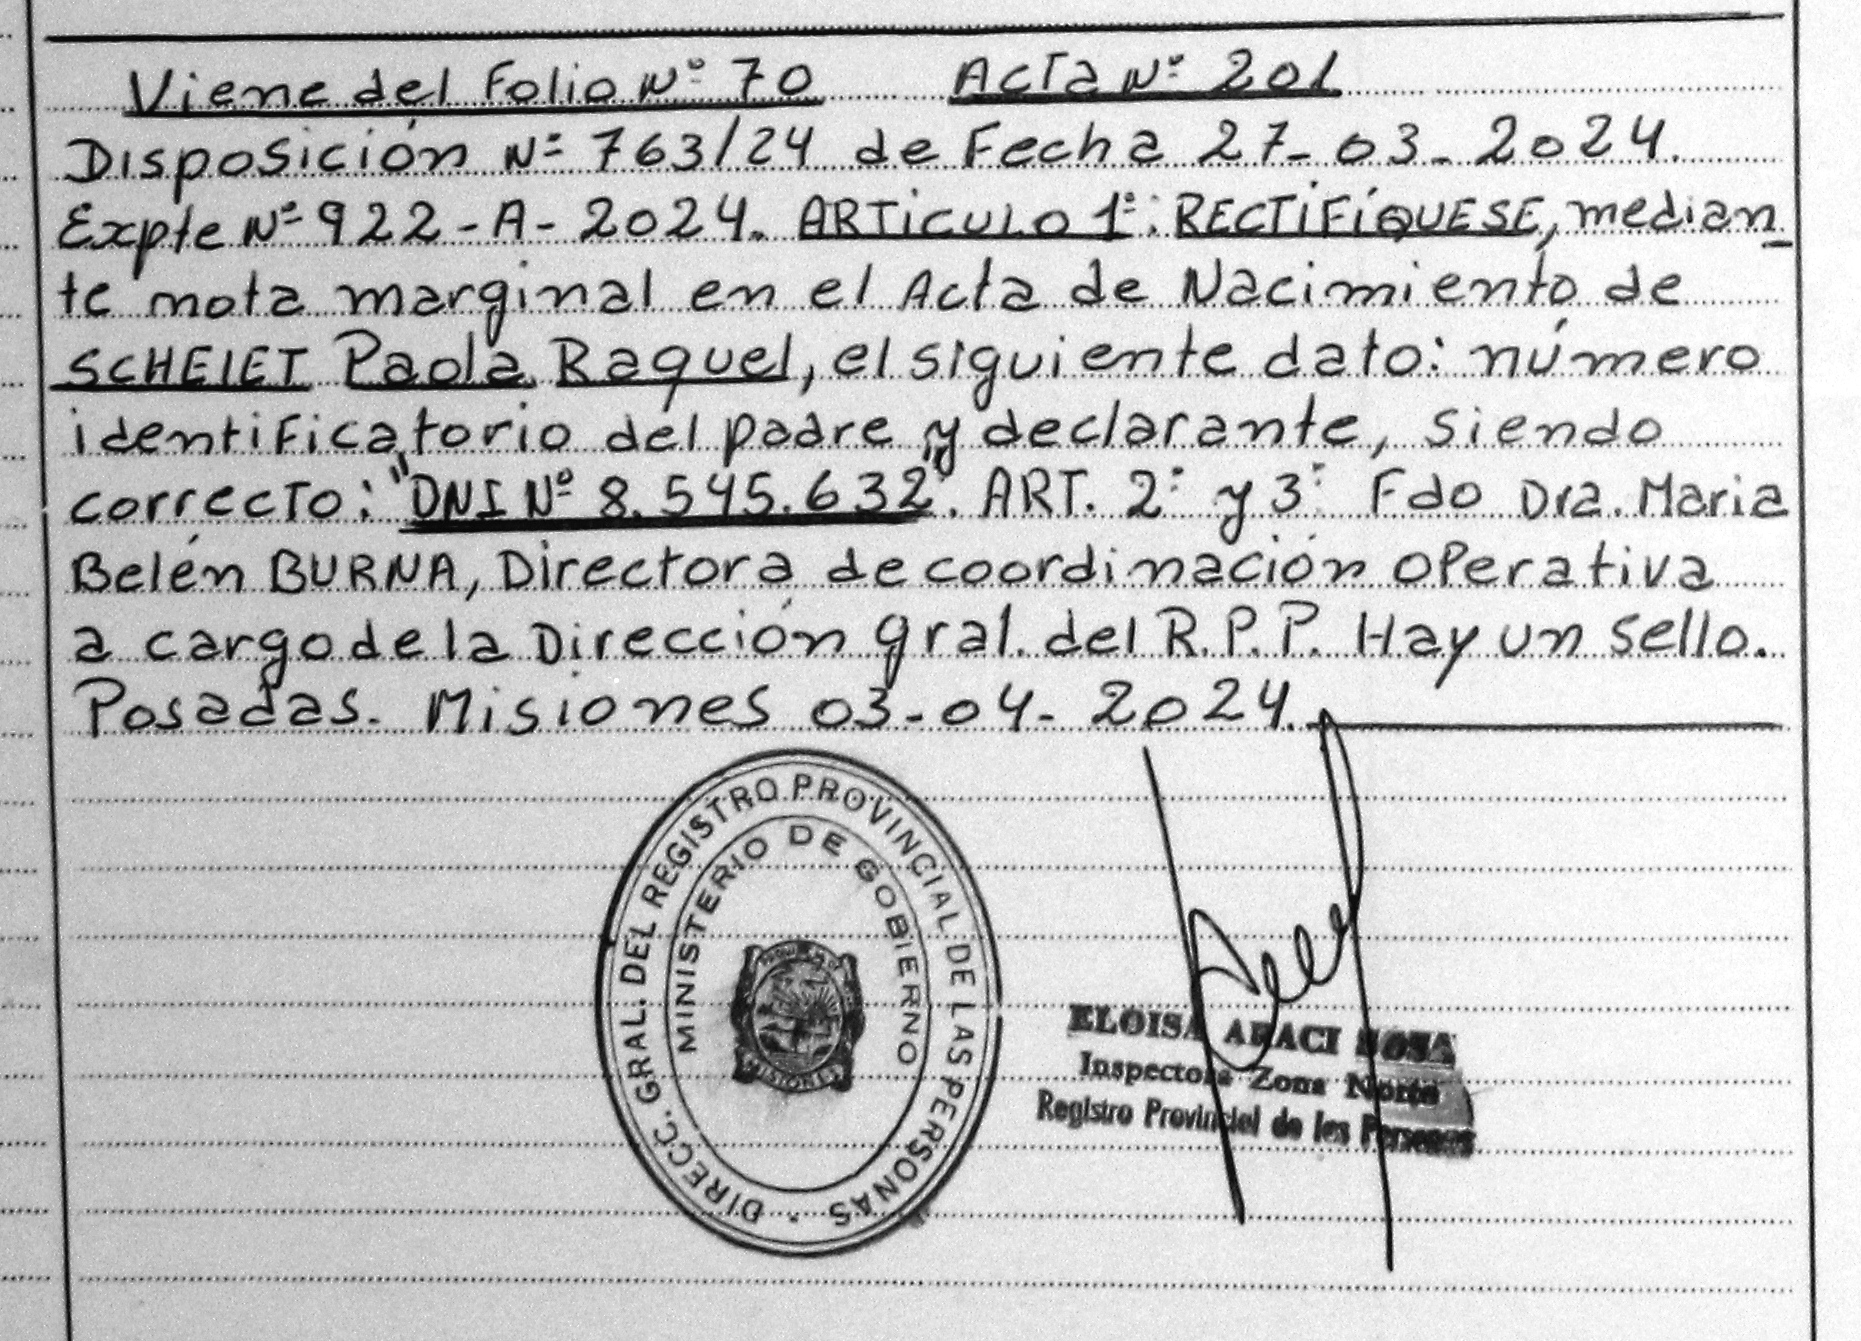 Viene del Folio Nº 70 Acta Nº 201
Disposición Nº 763/24 de Fecha 27-03-2024.
Expte Nº 922-A-2024. ARTiCULO 1º: RECTiFíQUESE, median_
te nota marginal en el Acta de Nacimiento de
SCHEIET Paola Raquel, el siguiente dato: número
identificatorio del padre y declarante, siendo
correcto: "DNI Nº 8.545.632". ART. 2º y 3º Fdo Dra. Maria
Belén BURNA, Directora de coordinación operativa
a cargo de la Dirección gral. del R.P.P. Hay un sello.
Posadas. Misiones 03-04-2024.
DIRECC. GRAL. DEL REGISTRO PROVINCIAL DE LAS PERSONAS
MINISTERIO DE GOBIERNO
MISIONES
ELOISA ARACI SOSA
Inspectora Zona Norte
Registro Provincial de las Personas